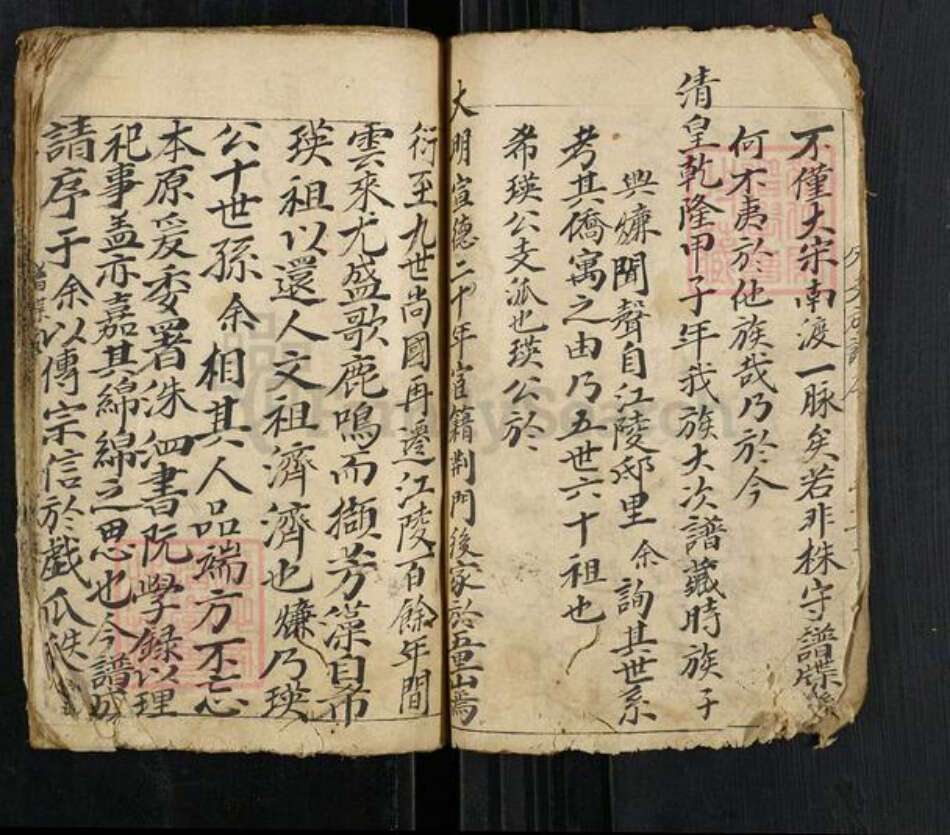 不僅大宋南渡一脉矣若非株守譜牒
何不夷於他族哉乃於今
清皇乾隆甲子年我族大次譜藏時族子
興爊聞聲自江陵邸里余詢其世系
考其僑寓之由乃五世六十祖也
希瑛公支派也瑛公於
大明宣德二十年宦籍荆門後家於五里山焉
衍至九世尚國再遷江陵百餘年間
雲來尤盛歌鹿鳴而擷芳藻自希
瑛祖以還人文祖濟濟也爊乃瑛
公十世孫余相其人品端方不忘
本原爰委署洙泗書院學録以理
祀事盖亦嘉其綿綿之思也今譜成
請序于余以傳宗信於戲瓜瓞